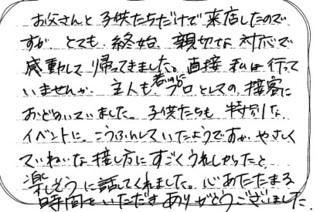 お父さんと子供たちだけで来店したので
すが とても、終始、親切な対応で
感動して帰ってきました。直接 私は行って
いませんが 主人も若いのにプロとしての接客に
おどろいていました。子供たちも 特別な
イベントに、こうふんしていたようですが やさしく
ていねいな接し方にすごくうれしかったと
楽しそうに話してくれました。心あたたまる
時間をいただき ありがとうございました